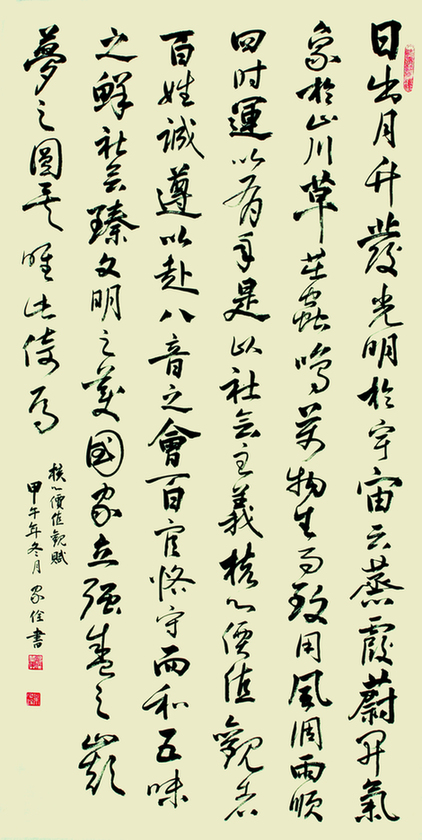 日出月升發光明於宇宙云蒸霞蔚昇氣
象於山川草茁蟲鳴萬物生而致用風調雨順
四时運以有年是以社会主義核心價值觀者
百姓诚遵以赴八音之會百官恪守而和五味
之鮮社会臻文明之美國家立强盛之巅
夢之圓矣唯此倚焉
核心價值觀賦
甲午年冬月家佺書